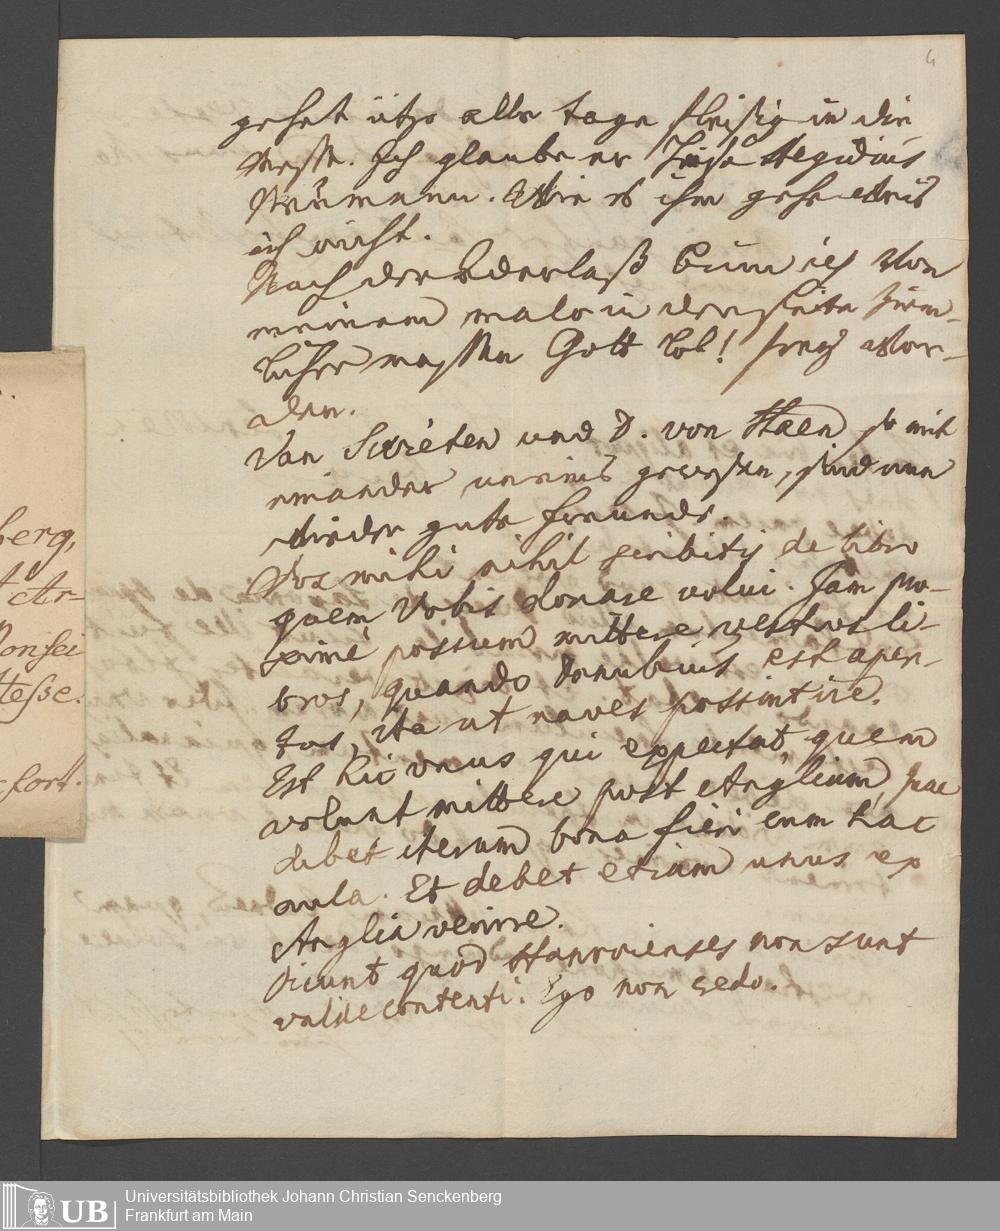 4
gehet itzo alle tage fleisig in die
Messe. Ich glaube er heise Aegidius
Neumann. Wie es ihm gehe weis
ich nicht.
Nach der Aderlaß bin ich von
meinem malo in der seite zim-
licher massen Gott Lob! frey wor-
den.
Van Swieten und D. von Haen so mit
einander uneins gewesen, sind nun
wieder gute freunde.
Vos mihi nihil scribitis de libro
quem Vobis donare volui. Jam pro-
xime possum mittere vestros li-
bros, quando Danubius est aper-
tus, ita ut naves possint ire.
Est hic unus qui expectat, quem
volunt mittere post Angliam, pax
debet iterum bona fieri cum hac
aula. Et debet etiam unus ex
Anglia venire.
Dicunt quod Hannovienses non sunt
valde contenti. Ego non credo.
berg,
Ar-
Consei
Hesse.
cfort.
UB
Universitätsbibliothek Johann Christian Senckenberg
Frankfurt am Main